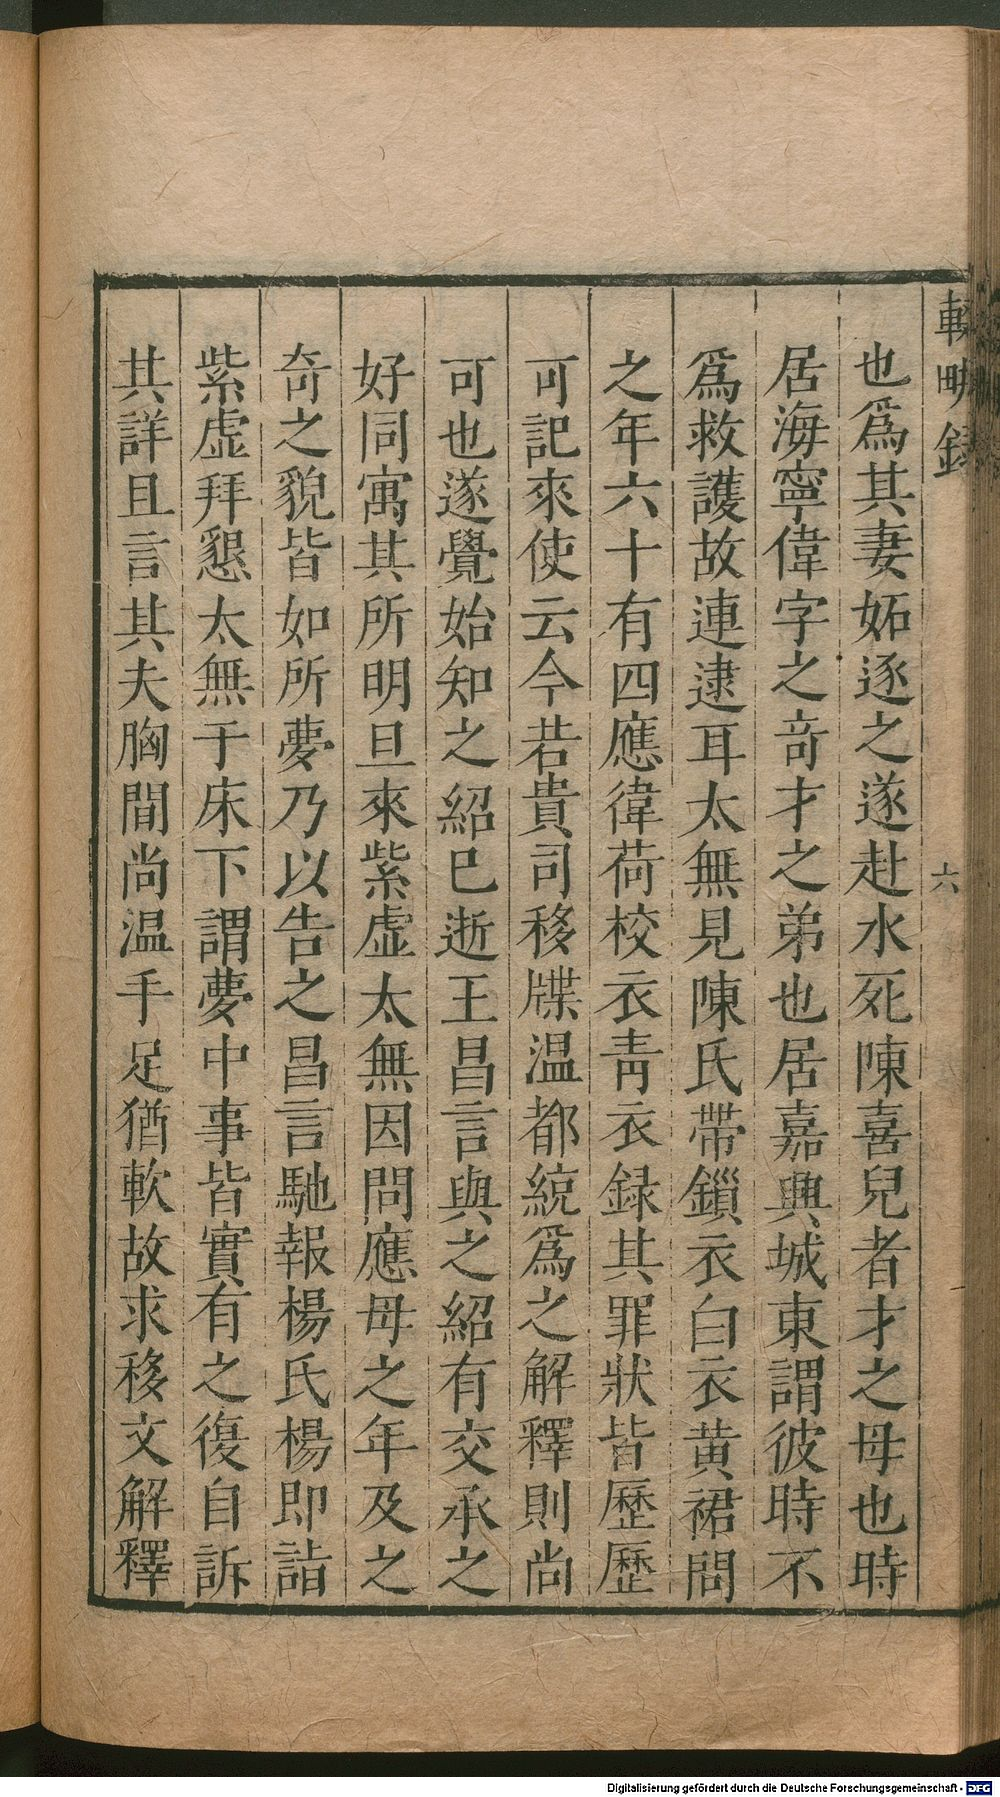 輟畊錄
六
也爲其妻妬逐之遂赴水死陳喜兒者才之母也時
居海寧偉字之奇才之弟也居嘉興城東謂彼時不
爲救護故連逮耳太無見陳氏帶鎻衣白衣黄裙問
之年六十有四應徫荷校衣青衣録其罪狀皆歷歷
可記來使云今若貴司移牒温都統爲之解釋則尚
可也遂覺始知之紹巳逝王昌言與之紹有交承之
好同寓其所明旦來紫虛太無因問應母之年及之
奇之貌皆如所夢乃以告之昌言馳報楊氏楊即詣
紫虛拜懇太無于床下謂夢中事皆實有之復自訴
其詳且言其夫胸間尚温手足猶軟故求移文解釋
Digitalisierung gefördert durch die Deutsche Forschungsgemeinschaft - DFG